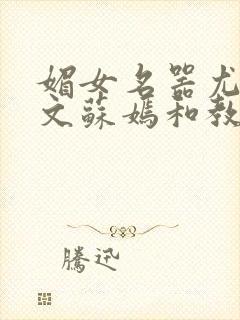 媚女名器尤
文蘇媽和教
騰迅